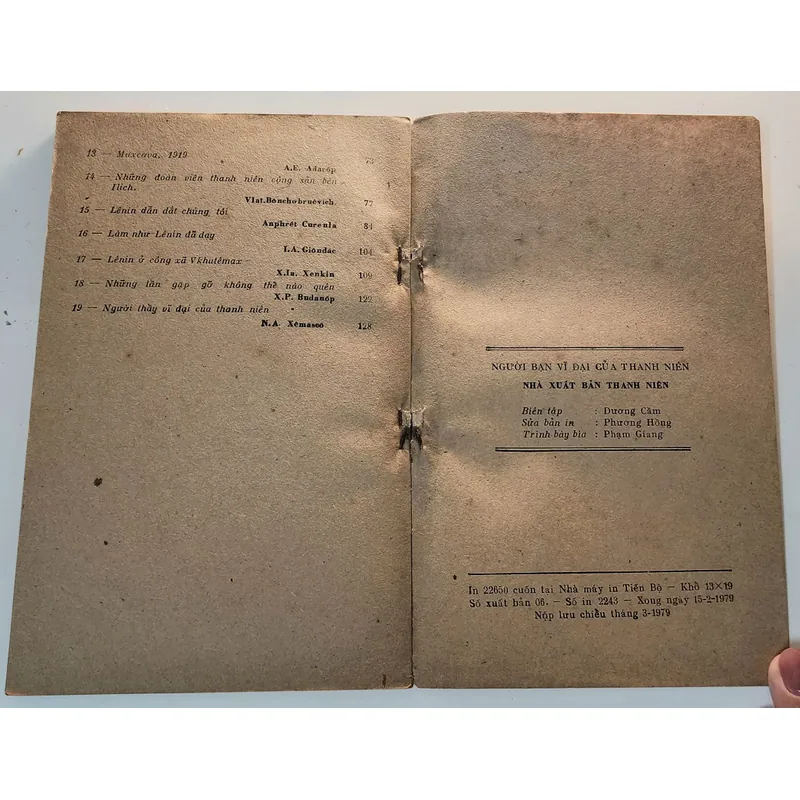 13 — Maxcơva, 1919 73
A.E. Adarốp
14 — Những đoàn viên thanh niên cộng sản bên
Ilich.
Vlat.Bonchobruêvich. 77
15 — Lênin dẫn dắt chúng tôi
Anphrét Curenla 84
16 — Làm như Lênin đã dạy
I.A. Giônđác 104
17 — Lênin ở công xã Vkhutêmax
X.Ia. Xenkin 109
18 — Những lần gặp gỡ không thể nào quên
X.P. Budanốp 122
19 — Người thầy vĩ đại của thanh niên
N.A. Xêmascô 128
NGƯỜI BẠN VĨ ĐẠI CỦA THANH NIÊN
NHÀ XUẤT BẢN THANH NIÊN
Biên tập : Dương Cầm
Sửa bản in : Phương Hồng
Trình bày bìa : Phạm Giang
In 22650 cuốn tại Nhà máy in Tiến Bộ — Khổ 13×19
Số xuất bản 06. — Số in 2243 — Xong ngày 15-2-1979
Nộp lưu chiểu tháng 3-1979